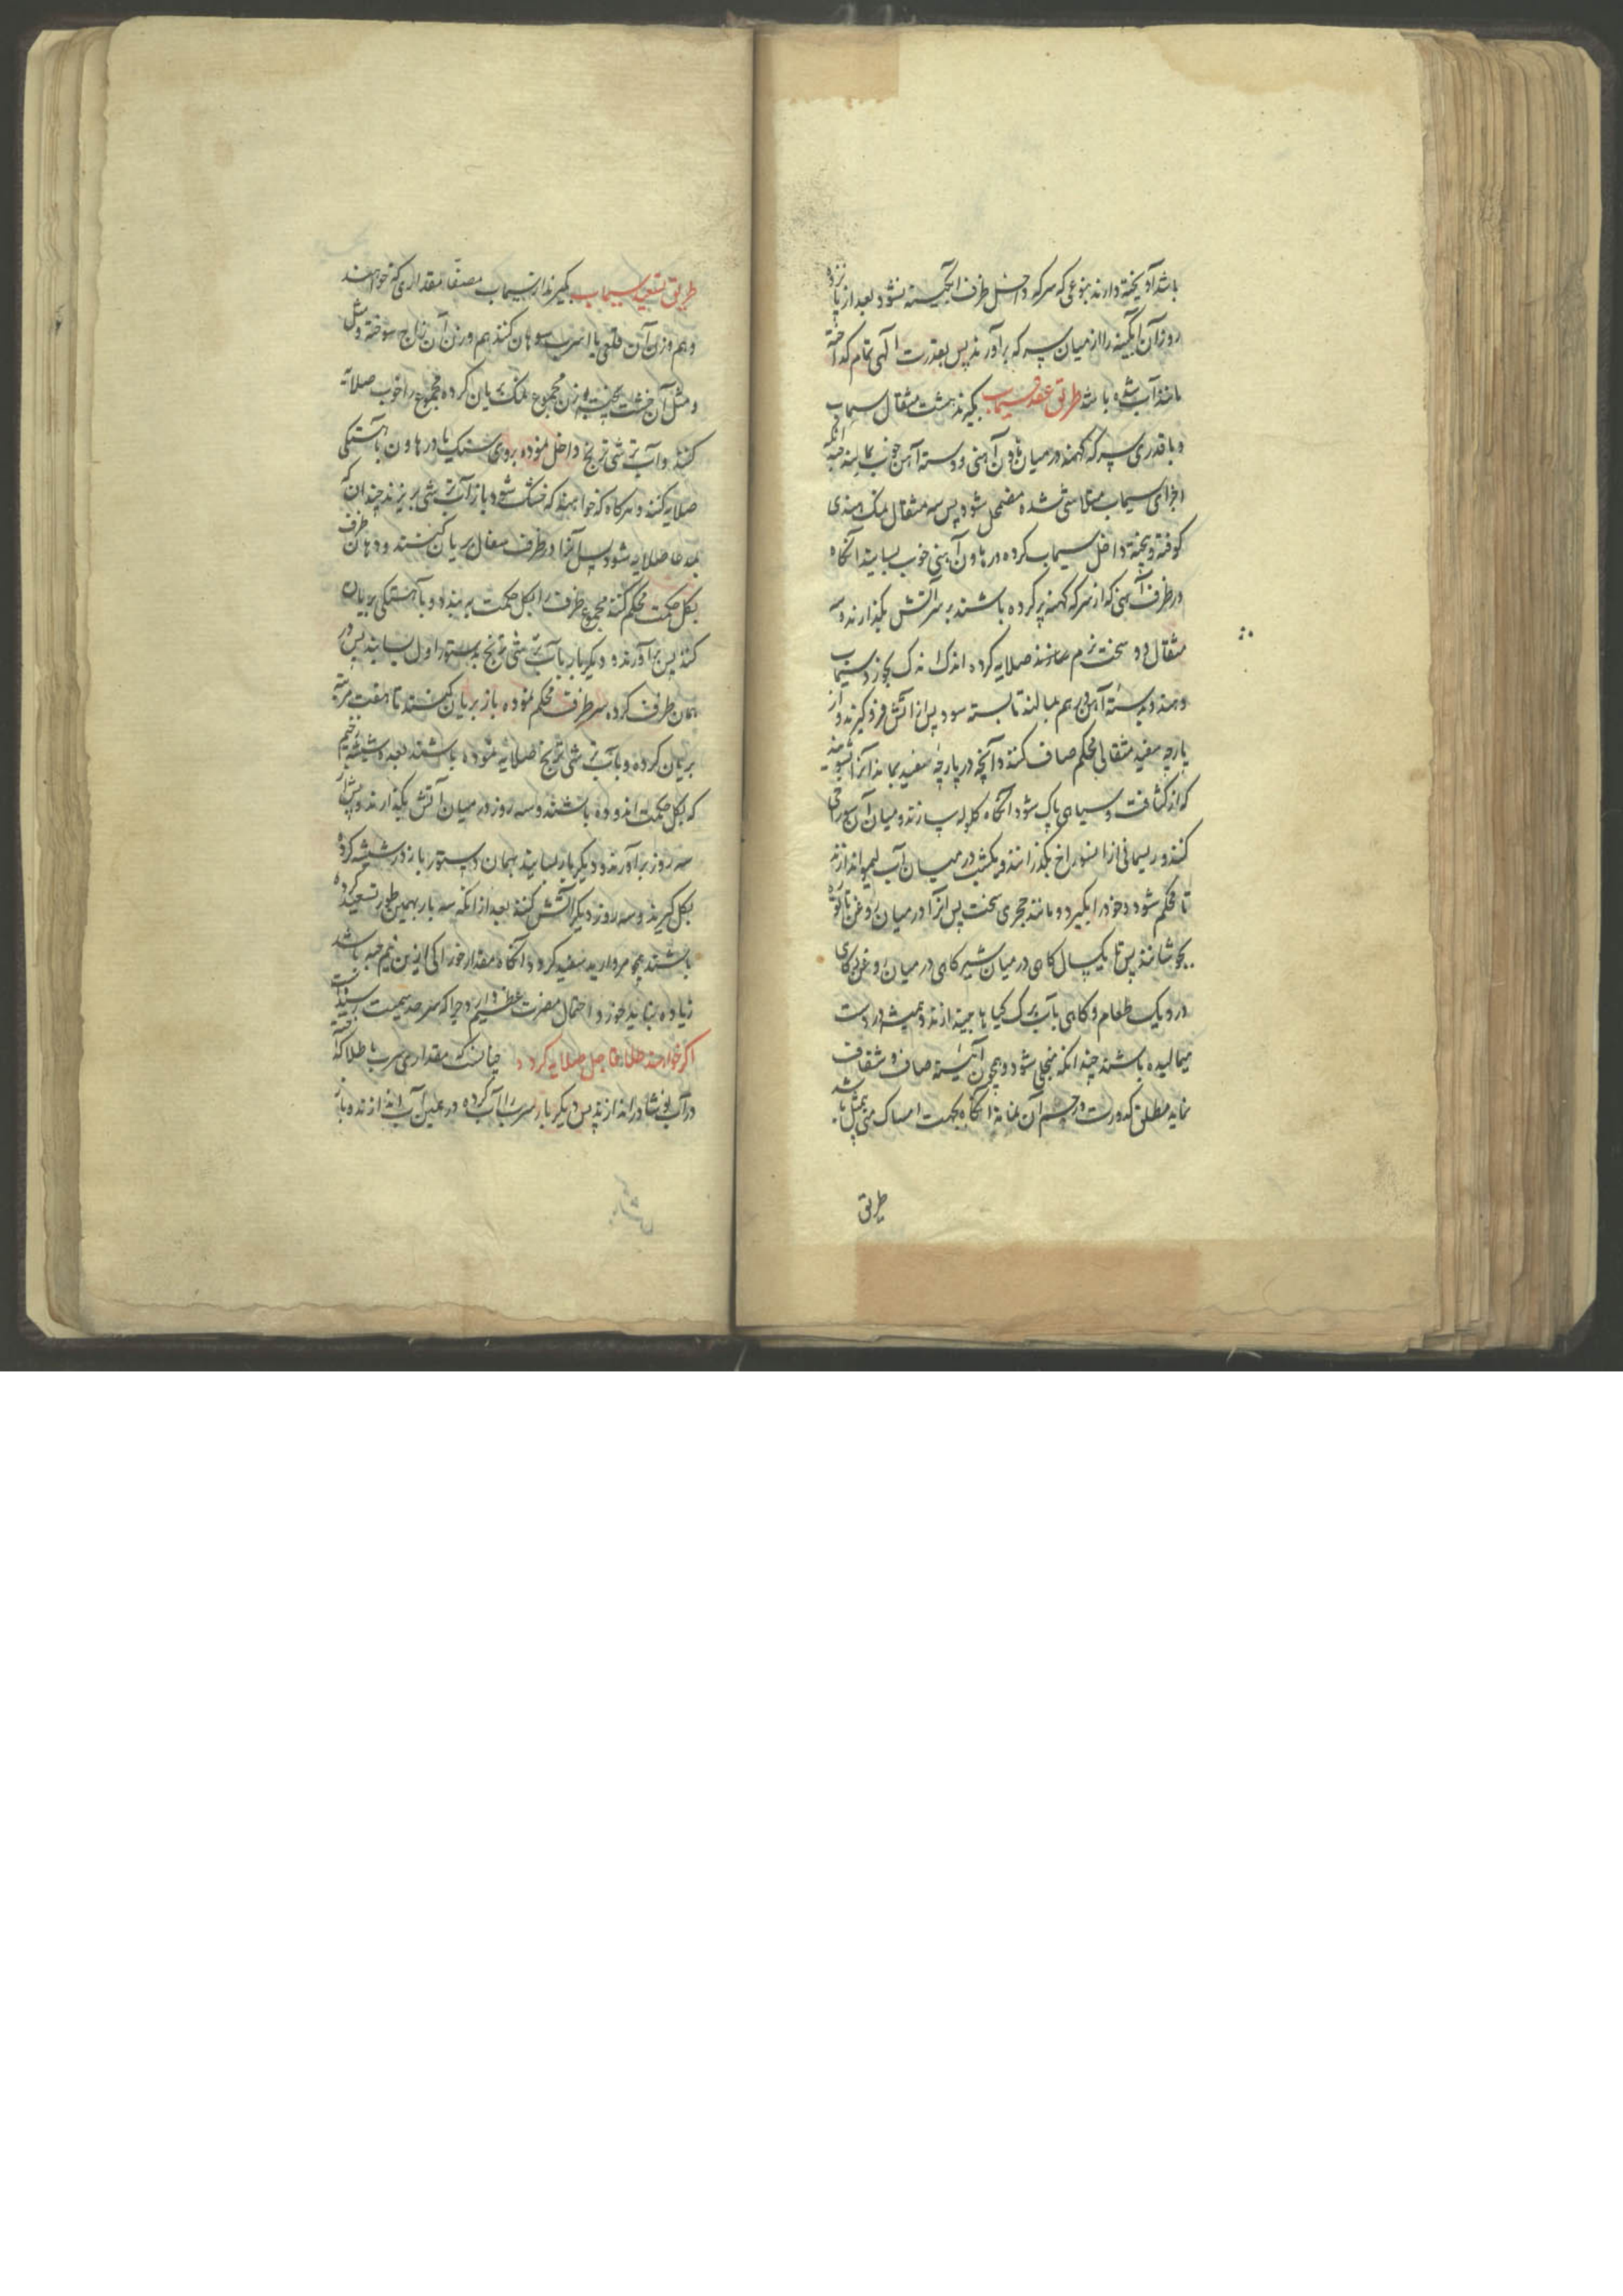 باشد آویخته دارند بنوعی که سرکه داخل ظرف آبگینه نشود بعد از پانزده
روز آن آبگینه را از میان سرکه برآورند پس بقدرت الهی تمام کداخته
مانند آب شده باشد طریق عقد سیماب بکیرند هشت مثقال سیماب
و با قدری سرکه کهنه در میان هاون آهنی و دسته آهن خوب بمالند چندانکه
اجزای سیماب متلاشی شده مضمحل شود پس سه مثقال نمک هندی
کوفته و بیخته داخل سیماب کرده در هاون آهنی خوب بسایند آنکاه
در ظرف آهنی که از سرکه کهنه پر کرده باشند بر سر آتش بکذارند و
مثقال سخت نرم صلایه کرده اندک اندک بخورد سیماب
دهند و بدسته آهن بر هم بمالند تا بسته شود پس از آتش فرو کیرند و از
پارچه سفید مثقالی محکم صاف کنند و آنچه در پارچه سفید بماند آنرا بشویند
که از کثافت و سیاهی پاک شود آنکاه کلوله سازند و میان آن سوراخی
کنند و ریسمانی از آن سوراخ بکذرانند و یکشب در میان آب لیمو اندازند
تا محکم شود و خود را بکیرد و مانند حجری سخت پس آنرا در میان روغن تاتوره
بجوشانند پس تا یکسال کاهی در میان شیر کاهی در میان روغن کاهی
در دیک طعام و کاهی بآب برک کیاها میندازند و همیشه در دست
میمالیده باشند چندانکه منجلی شود و همچون آئینه صاف و شفاف
نماید مطلق کدورت در جسم آن نماند آنکاه بجهت امساک منی بیمثل باشد
طریق
طریق تصعید سیماب بکیرند از سیماب مصفا مقداری که خواهند
و هم وزن آن قلعی یا اسرب سوهان کنند هم وزن آن زاج سوخته و مثل
و مثل آن خشت پخته و وزن مجموع نمک بریان کرده مجموع را خوب صلایه
کنند و آب ترشی ترنج داخل نموده بروی سنک یا در هاون بآهستکی
صلایه کنند و هرکاه که خواهند که خشک شود باز آب ترشی بریزند چندان که
بمدعا صلایه شود پس آنرا در ظرف سفال بریان کنند و دهان ظرف
بکل حکمت محکم کنند مجموع ظرف را بکل حکمت برینداود و بآهستکی بریان
کنند پس برآورند و دیکربار بآب ترشی ترنج بدستور اول بسایند پس در
همان ظرف کرده سر ظرف محکم نموده باز بریان کنند تا هفت مرتبه
بریان کرده و بآب ترشی ترنج صلایه نموده باشند بعده در شیشه ضخیم
که بکل حکمت اندوده باشند و سه روز در میان آتش بکذارند و پس از
سه روز برآورند و دیکربار بسایند بهمان دستور باز در شیشه کرده
بکل کیرند و سه روز دیکر آتش کنند بعد از آنکه سه بار بهمین طور تصعید کرده
باشند همچو مروارید سفید کردد آنکاه مقدار خوراکی ازین نیم حبه باشد
زیاده نباید خورد و احتمال مضرت عظیم دارد چرا که سرحد سمیت رسیده است
اکر خواهند طلا صلایه کردد چنانست که مقداری سرب با طلا کداخته
در آب نوشادر اندازند پس دیکر بار سرب را آب کرده در همین آب اندازند و باز